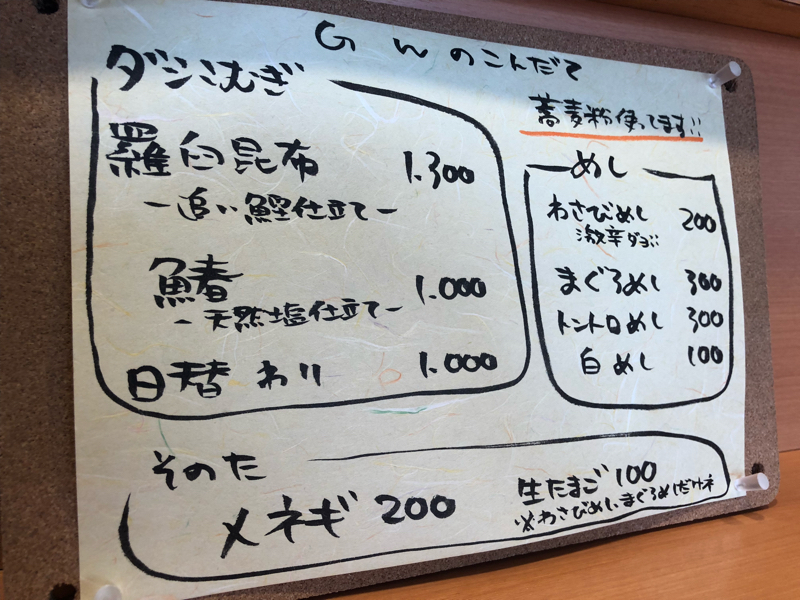 Gwのこんだて
ダシこむぎ
羅臼昆布 1.300
ー追い鰹仕立てー
鰆 1.000
ー天然塩仕立てー
日替わり 1.000
蕎麦粉使ってます!!
めし
わさびめし 200
激辛ダヨ!!
まぐろめし 300
トントロめし 300
白めし 100
そのた
メネギ 200
生たまご 100
※わさびめし、まぐろめしだけネ